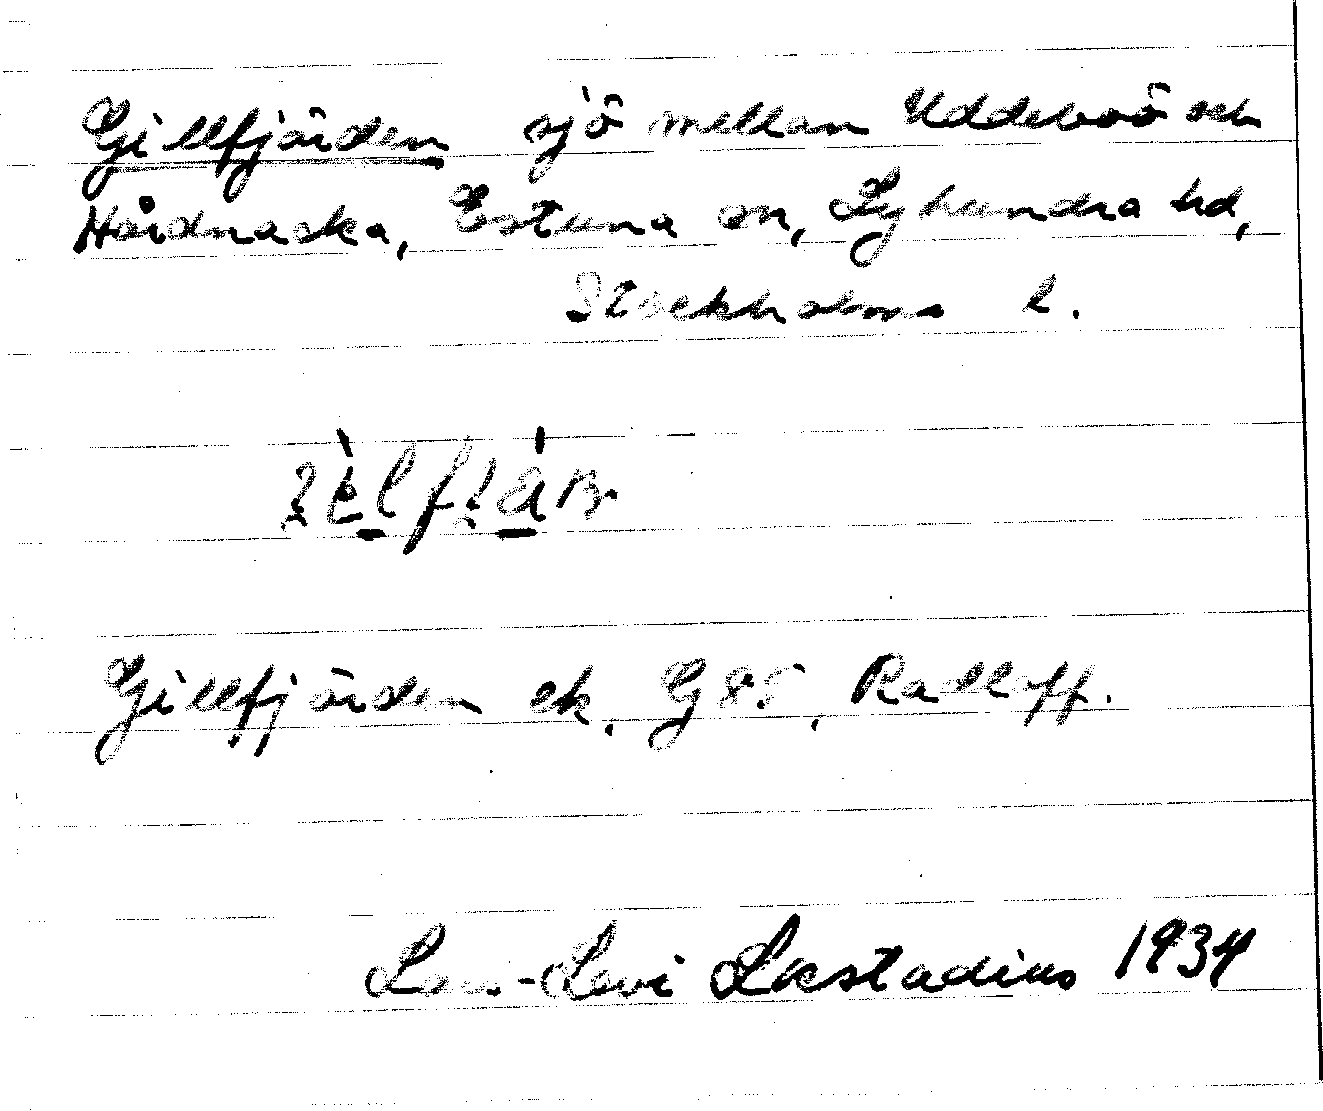 Gillfjärden sjö mellan Uddeboö och
Hårdnacka, Estuna sn, Lyhundra hd,
Stockholms l.
Gillfjärden ek. G 85, Radloff.
Lars-Levi Læstadius 1934